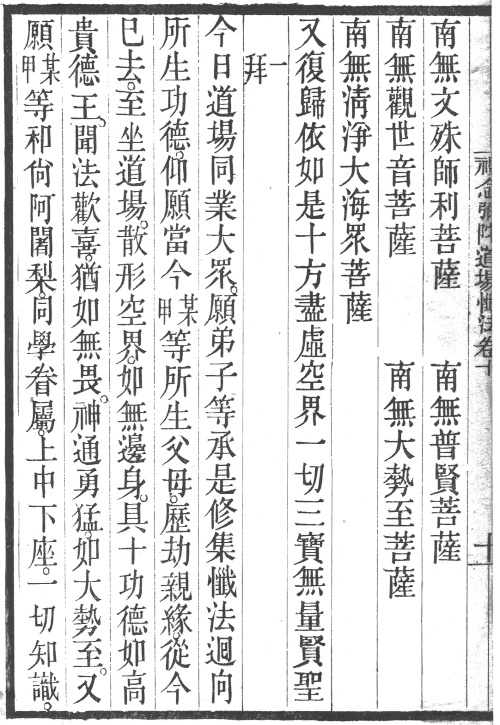 禮念彌陀道場懺法卷十
十一
南無文殊師利菩薩　南無普賢菩薩
南無觀世音菩薩　南無大勢至菩薩
南無清淨大海眾菩薩
又復歸依如是十方盡虛空界一切三寶無量賢聖
一拜
今日道場同業大眾。願弟子等承是修集懺法迴向
所生功德。仰願當今某甲等所生父母。歷劫親緣。從今
已去。至坐道場。散形空界。如無邊身。具十功德如高
貴德王。聞法歡喜。猶如無畏。神通勇猛。如大勢至。又
願某甲等和尚阿闍梨。同學眷屬。上中下座。一切知識。